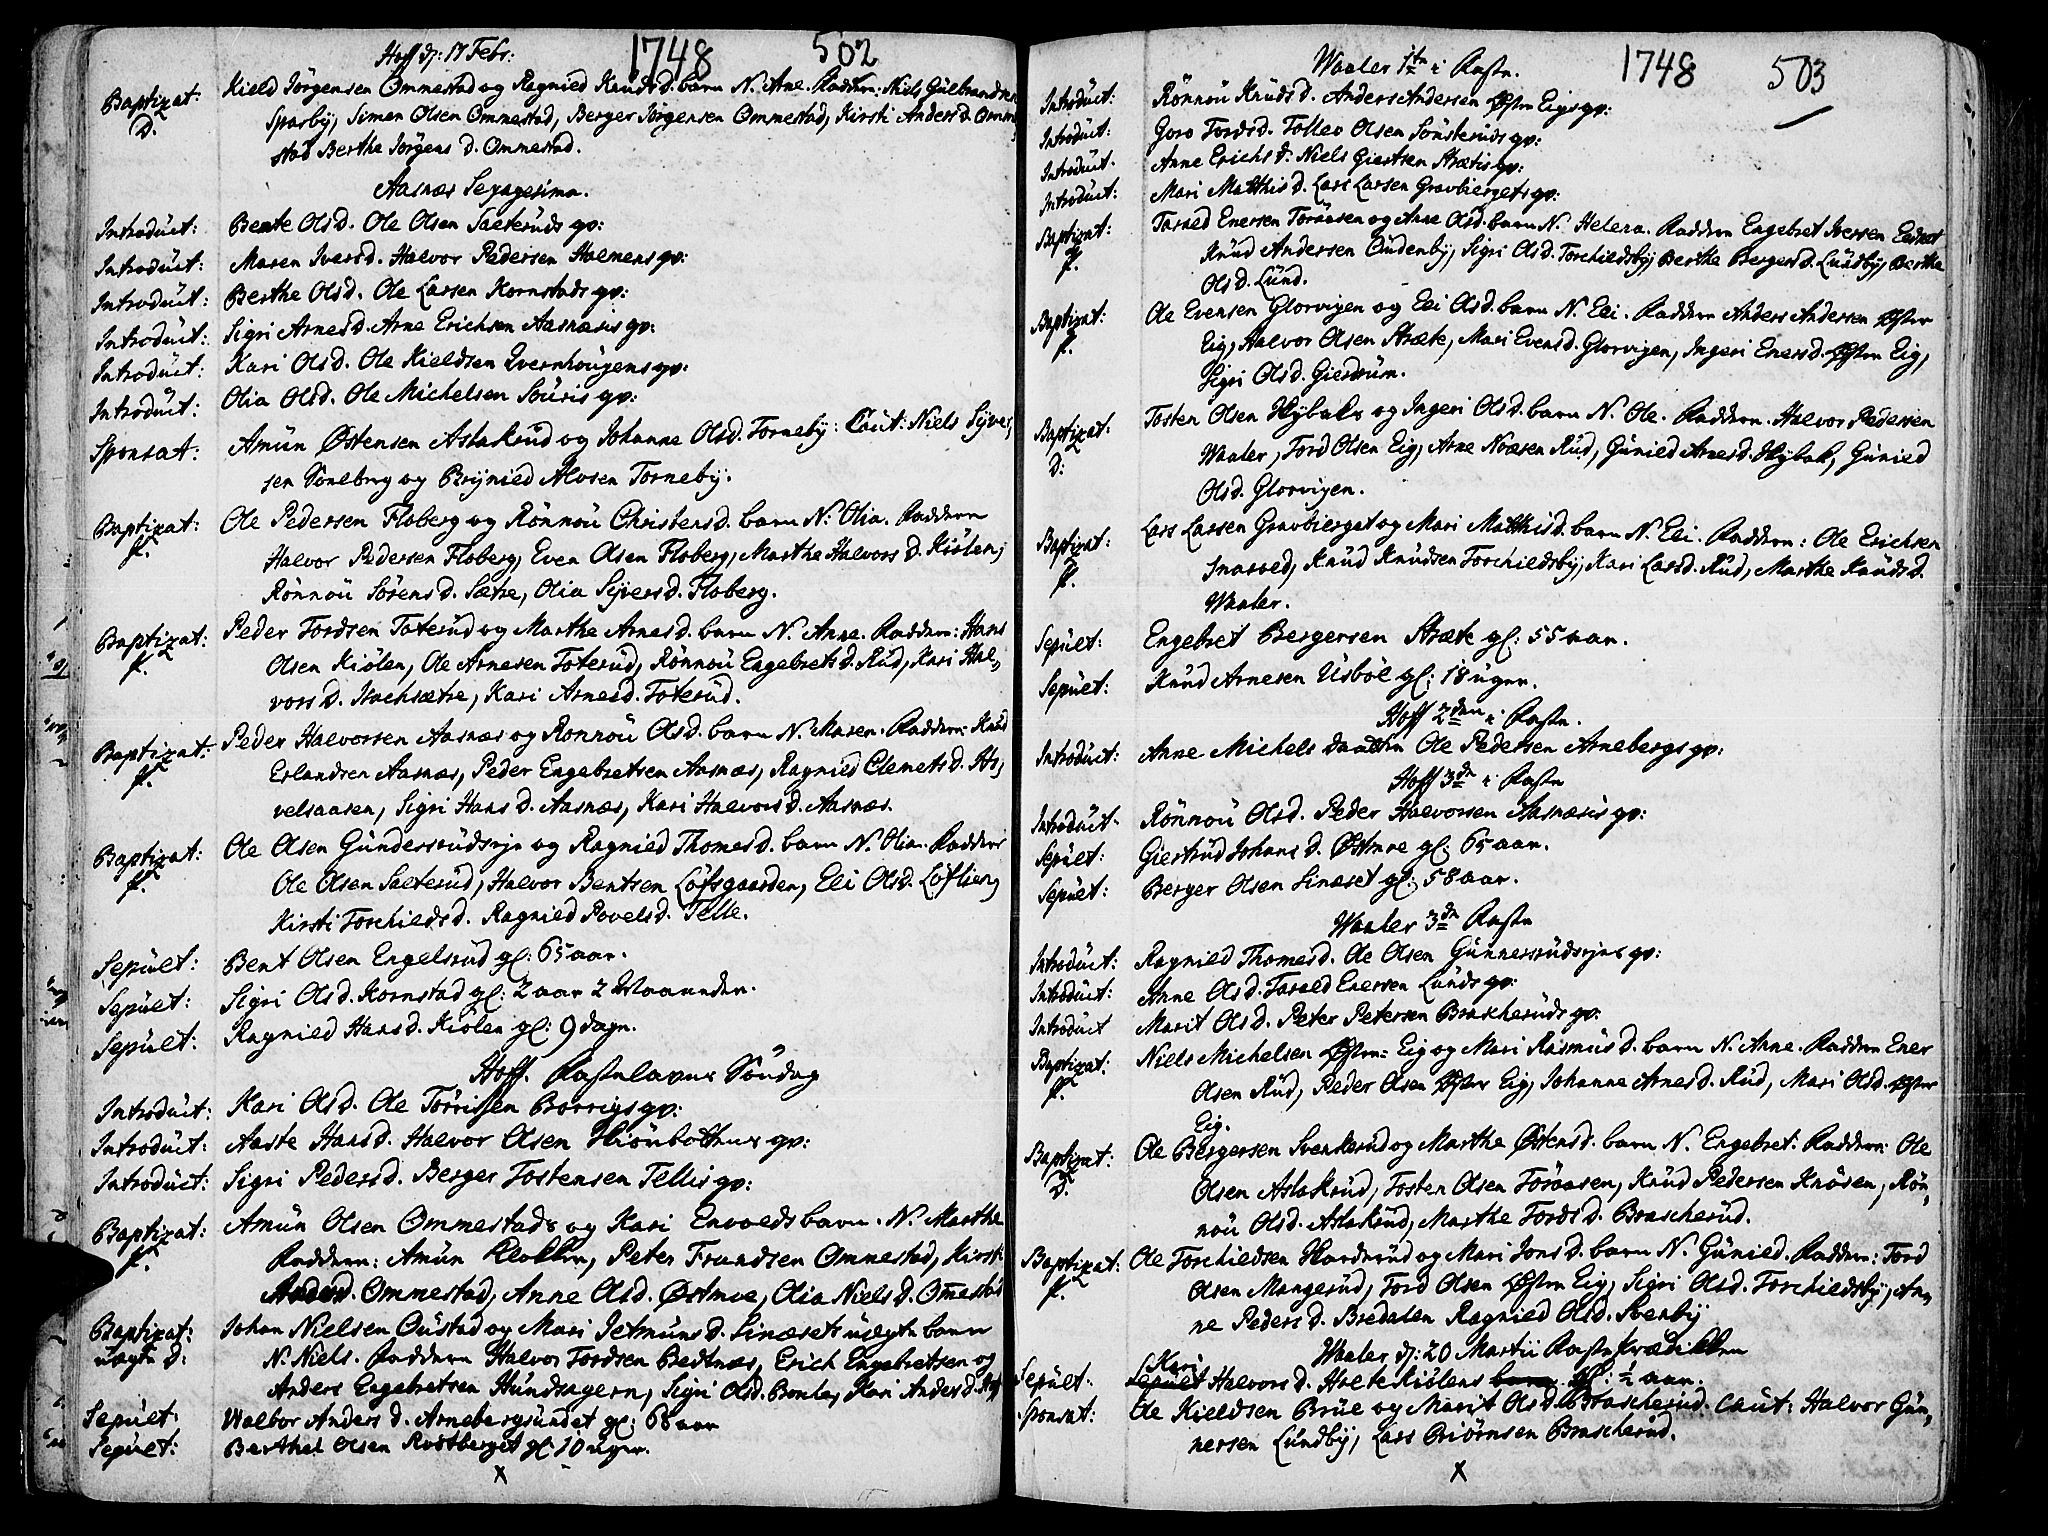 Hoff d: 17 Febr:
1748
502
Baptizat: Kield Jörgensen Ommestad og Ragnied Knüds d. barn N. Arne. Faddern: Niels Gülbrandsen
D. Sparby, Simen Olsen Ommestad, Berger Jörgensen Ommestad, Kirsti Anders d. Omme
stad Berthe Jörgens d. Ommestad.
Aasnæs Sexagesima.
Introdüct: Bente Olsd. Ole Olsen Sæterüds qv:
Introdüct: Maren Iversd. Halvor Pedersen Holmens qv:
Introdüct: Berthe Olsd. Ole Larsen Kornstads qv:
Introdüct: Sigri Arnesd. Arne Erichsen Aasnæsis qv:
Introdüct: Kari Olsd. Ole Kieldsen Qvernhoügens qv:
Introdüct: Olia Olsd. Ole Michelsen Söüris qv:
Sponsat: Amün Østensen Aslakrüd og Johanne Olsd. Torneby: Caüt: Niels Syver,
sen Soneberg og Brynied Alvsen Torneby.
Baptizat: Ole Pedersen Floberg og Rönnoü Christensd. barn N: Olia. Faddern
f. Halvor Pedersen Floberg, Even Olsen Floberg, Marthe Halvors d. Kiölen,
Rönnoü Sörens d. Sætre, Olia Syvers d. Floberg.
Baptizat: Peder Tordsen Toterüd og Marthe Arnes d. barn N. Anne. Faddern: Hans
f. Olsen Kiölen, Ole Arnesen Toterüd, Rönnoü Engebrets d. Rüd, Kari Hal,
vors d. Kochsætre, Kari Arnesd. Toterüd.
Baptizat: Peder Halvorsen Aasnæs og Ronnoü Olsd. barn N. Maren. Faddern: Knüd
f. Erlandsen Aasnæs, Peder Engebretsen Aasnæs, Ragnied Clemets d. Ho,
velsaasen, Sigri Hans d. Aasnæs, Kari Halvors d. Aasnæs.
Baptizat: Ole Olsen Gündersrüdsejn og Ragnied Thomes d. barn N. Olia. Faddern
f. Ole Olsen Saeterüd, Halvor Bentsen Löfsgaarden, Eli Olsd. Löflien,
Kirsti Torchields d. Ragnied Povels d. Telle.
Sepült: Bent Olsen Engelsrüd gl: 65 aar.
Sepült: Sigri Olsd. Kornstad gl: 2 aar 2 Maaneder.
Sepült: Ragnied Hans d. Kiölen gl: 9 dage.
Hoff. Fastelavns Söndag
Introdüct: Kari Olsd. Ole Törrisen Borrigs qv:
Introdüct: Aaste Hans d. Halvor Olsen Skiönbottens qv:
Introdüct: Sigri Peders d. Berger Tostensen Tellis qv:
Baptizat: Amün Olsen Ommestads og Kari Envolds barn. N. Marthe
f. Faddern: Amün Klokken, Peter Frandsen Ommestad, Kirsti
Andersd. Ommestad, Anne Olsd. Østmoe, Olia Niels d. Omestad
Baptizat: Johan Nielsen Oüstad og Mari Jetmüns d. Sinæsets üægte barn
üægte d: N. Niels. Faddern Halvor Tordsen Bredtnæs, Erich Engebretsen og
Anders Engebretsen Hundsagern, Sigri Olsd. Bonlas, Kari Anders d.
Sepült: Walbor Anders d. Arnebergsündet gl: 68 aar
Sepült: Barthel Olsen Rustberget gl: 10 üger.
x
Waaler 1te i Fasten.
1748
503
Introdüct: Rönnoü Knüds d. Anders Andersen Østre Eigs qv:
Introdüct: Goro Tordsd. Tollev Olsen Sönsterüds qv:
Introdüct. Anne Erichs d. Niels Giertsen Strætis qv:
Introdüct: Mari Matthis d. Lars Larsen Gravbiergets qv:
Baptizat: Taraed Enersen Toraasen og Anne Olsd. barn N. Helena. Faddern Engebret Iversen
f. Knüd Andersen Oüdenby, Sigri Olsd. Torchildsby, Berthe Bergersd. Lündby, Berthe
Olsd. Lünd.
Baptizat: Ole Evensen Glorvigen og Eli Olsd. barn N. Eli. Faddern Anders Andersen Østre
f. Eig, Halvor Olsen Stræte, Mari Evensd. Glorvigen, Ingeri Enersd. Østre Eig,
Sigri Olsd. Gierdrüm.
Baptizat: Tosten Olsen Hybaks og Ingeri Olsd. barn N. Ole. Faddern. Halvor Pedersen
D: Waaler, Tord Olsen Eig, Arne Noæsen Rüd, Günied Arnesd. Hybak, Günied
Olsd. Glorvigen.
Baptizat: Lars Larsen Gravbierget og Mari Matthisd. barn N. Eli. Faddern: Ole Erichsen
f. Snarved, Knüd Knüdsen Torchieldsby, Kari Larsd. Rüd, Marthe Knüds d.
Waaler.
Sepült: Engebret Bergersen Stræte gl: 55 aar.
Sepült: Knüd Arnesen Üsböl gl: 18 üger.
Hoff 2den i Fasten.
Introdüct: Anne Michels daatter Ole Pedersen Arnebergs qv:
Hoff 3de i Fasten
Introdüct. Rönnoü Olsd. Peder Halvorsen Aasnæsis qv:
Sepült: Giertrüd Johans d. Østmoe gl: 65 aar.
Sepült: Berger Olsen Sinæset gl: 58 aar.
Waaler 3de Fasten
Introdüct: Ragnied Thomesd. Ole Olsen Günnersrüdsejes qv:
Introdüct: Anne Olsd. Taraed Enersen Lünds qv:
Introdüct Marit Olsd. Peter Petersen Brascherüds qv:
Baptizat: Niels Michelsen Østre Eig og Mari Rasmüs d. barn N. Anne. Faddern Ener
f. Olsen Rüd, Peder Olsen Østre Eig, Johanne Arnes d. Rüd, Mari Olsd. Østre
Eig.
Baptizat: Ole Bergersen Svenkerüd og Marthe Østensd. barn N. Engebret. Faddern: Ole
D. Olsen Aslakrüd, Tosten Olsen Toraasen, Knüd Pedersen Knösen, Rön,
noü Olsd. Aslakrüd, Marthe Tords d. Brascherüd.
Baptizat: Ole Torchieldsen Harderüd og Mari Jons d. barn N. Günied. Faddern: Tord
f. Olsen Mangerüd, Tord Olsen Østre Eig, Sigri Olsd. Torchieldsby, An,
ne Peders d. Bredalen Ragnied Olsd. Svenby
Waaler d: 20 Martii Fasteprædikken
Kari
Sepült. Sepült Halvors d. Holte Kiölens barn gl: ½ aar.
Sponsat: Ole Kieldsen Brüe og Marit Olsd. Brascherüd. Caüt: Halvor Gün,
nersen Lündby, Lars Biörnsen Brascherüd.
x